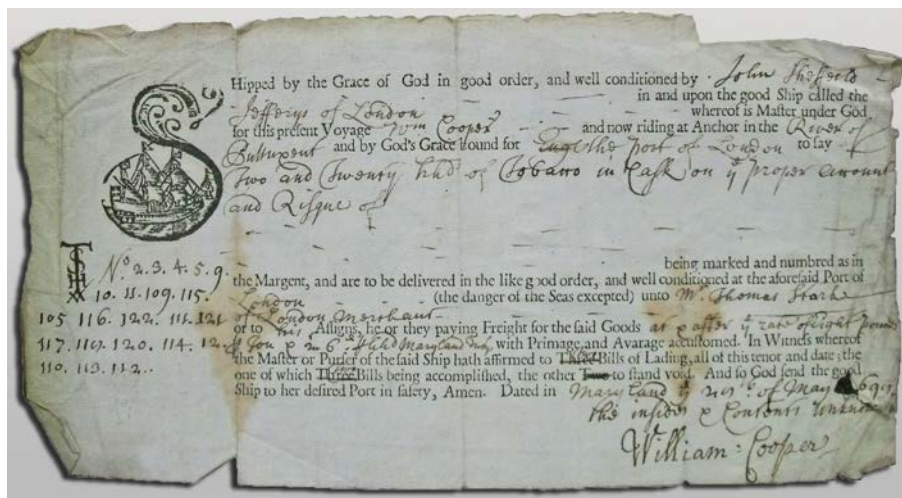 SHipped by the Grace of God in good order, and well conditioned by John Sheffeild
in and upon the good Ship called the
Jefferys of London whereof is Master under God
for this present Voyage Wm Cooper and now riding at Anchor in the River of
Puttuxent and by God's Grace bound for the Port of London to say
Two and Twenty hhds of Tobacco in Cask on ye proper account
and Risque of
being marked and numbred as in
No 2. 3. 4. 5. 9.
the Margent, and are to be delivered in the like good order, and well conditioned at the aforesaid Port of
10. 11. 109. 115.
London (the danger of the Seas excepted) unto Mr Thomas Starke
105 116. 122. 111. 121
of London Merchant
or to his Assigns, he or they paying Freight for the said Goods at & after ye rate of eight pounds
117. 119. 120. 114.
Ton with Primage and Avarage accustomed. In Witness whereof
110. 113. 112.
the Master or Purser of the said Ship hath affirmed to Three Bills of Lading, all of this tenor and date; the
one of which Three Bills being accomplished, the other Two to stand void. And so God send the good
Ship to her desired Port in safety, Amen. Dated in Maryland ye of May
the insides & Contents unknown
William Cooper